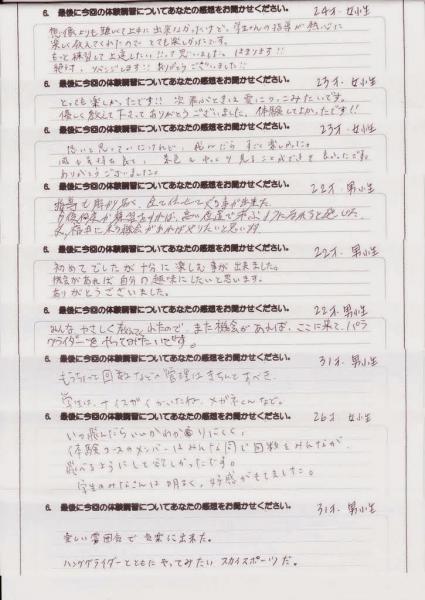 6. 最後に今回の体験講習についてあなたの感想をお聞かせください。 24才 女性
想像よりも難しくて上手に出来なかったけど、学生さんの指導が熱心に
楽しく教えてくれたのでとても楽しかったです。
もっと練習して上達したい!!って思いました。
絶対リベンジします!! ありがとうございました!!
6. 最後に今回の体験講習についてあなたの感想をお聞かせください。 23才 女性
とっても楽しかったです!! 次
優しく教えて下さってありがとうございました。体験してよかったです!!
6. 最後に今回の体験講習についてあなたの感想をお聞かせください。 23才 女性
怖いと思っていたけれど、飛んだらすごく楽しかった。
風も気持ち良く、景色もゆっくり見ることができて良かったです。
ありがとうございました。
6. 最後に今回の体験講習についてあなたの感想をお聞かせください。 22才 男性
事が出来た。
機会があればやりたいと思います
6. 最後に今回の体験講習についてあなたの感想をお聞かせください。 22才 男性
初めてでしたが十分に楽しむ事が出来ました。
機会があれば自分の趣味にしたいと思います。
ありがとうございました。
6. 最後に今回の体験講習についてあなたの感想をお聞かせください。 22才 男性
みんなやさしく教えてくれたので、また機会があれば、ここに来て、パラ
グライダーをやってみたいです。
6. 最後に今回の体験講習についてあなたの感想をお聞かせください。 31才 男性
もうちょっと回数などの管理はきちんとすべき。
学生は、ナイスガイがいたわ、メガネくんなど。
6. 最後に今回の体験講習についてあなたの感想をお聞かせください。 26才 女性
いつ飛んだらいいかわかりにくく、
体験コースのメンバーはみんな同じ回数をみんなが
飛べるようにして欲しかったです。
学生のみなさんは明るく、好感がもてました。
6. 最後に今回の体験講習についてあなたの感想をお聞かせください。 31才 男性
楽しい雰囲気で 出来た。
ハンググライダーとともにやってみたいスカイスポーツだ。